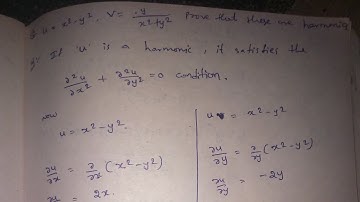 u = x²-y², V = -y/(x²+y²) Prove that these are harmonic
If 'u' is a harmonic, it satisfies the
∂²u/∂x² + ∂²u/∂y² = 0 condition.
now
u = x²-y².
∂u/∂x = ∂/∂x (x²-y²)
= 2x.
u = x²-y²
∂u/∂y = ∂/∂y (x²-y²)
∂u/∂y = -2y